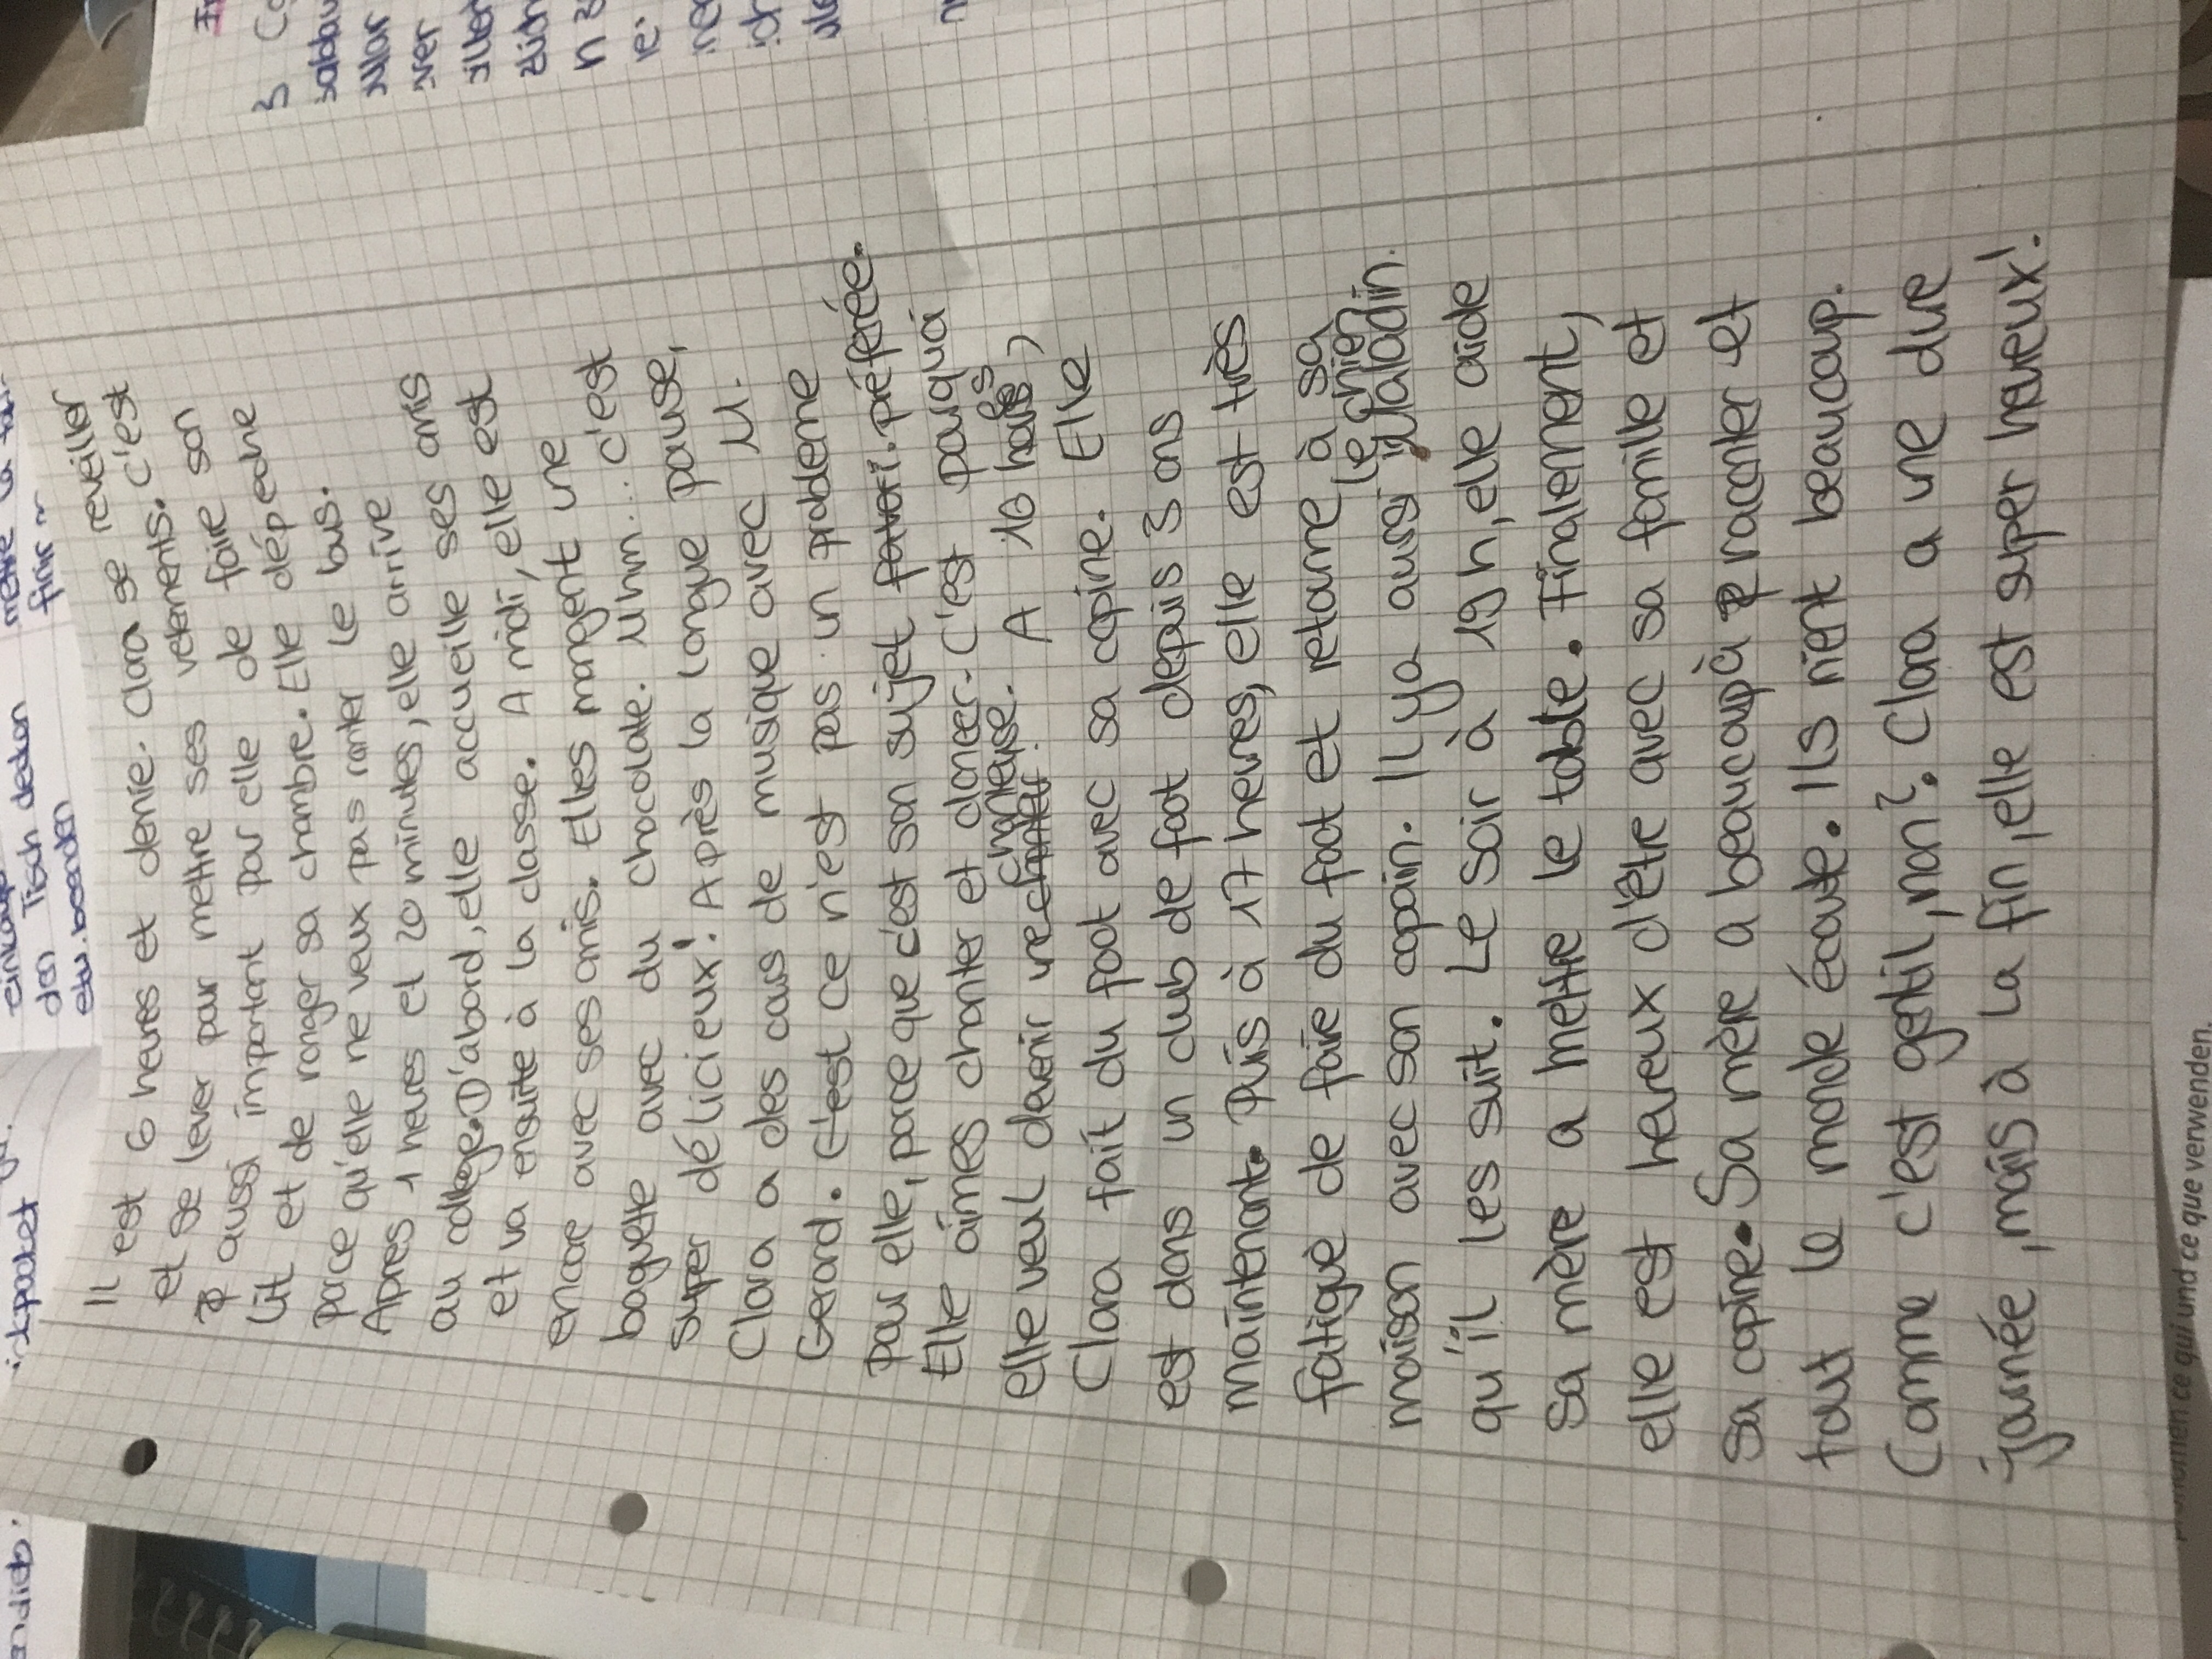 Il est 6 heures et demie. Clara se reveiller
et se lever pour mettre ses vetements. c'est
aussi important pour elle de faire son
lit et de ranger sa chambre. Elle dépeche
parce qu'elle ne veux pas ranter le bus.
Apres 1 heures et 20 minutes, elle arrive
au college. D'abord, elle accueille ses amis
et va ensuite à la classe. A midi, elle est
encore avec ses amis. Elles mangent une
baguette avec du chocolate. Mhm... c'est
super délicieux! Après la longue pause,
Clara a des cours de musique avec M.
Gerard. C'est ce n'est pas un probleme
pour elle, parce que c'est son sujet favori. préferée.
Elle aimes chanter et danser. C'est pourquoi
elle veut devenir une chanteuse. A 16 heures,
Clara fait du foot avec sa copine. Elle
est dans un club de foot depuis 3 ans
maintenant. Puis à 17 heures, elle est très
fatigué de faire du foot et retourne à sa
maison avec son copain. Il y a aussi le chien Maladin.
qu'il les suit. Le soir à 19 h, elle aide
sa mère a mettre le table. Finalement,
elle est heureux d'être avec sa famille et
sa copine. Sa mère a beaucoup à raconter et
tout le monde écoute. Ils rient beaucoup.
Comme c'est gentil, non?. Clara a une dure
journée, mais à la fin, elle est super heureux!
den Tisch decken
ce qui und ce que verwenden.